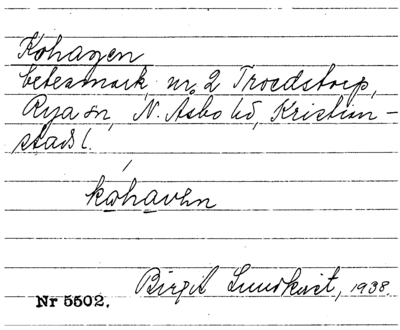 Kohagen
betesmark nr 2 Troedstorp,
Rya sn, N. Åsbo hd, Kristian-
stads l.
kohaven
Birgit Lundkvist, 1938.
Nr 5502.